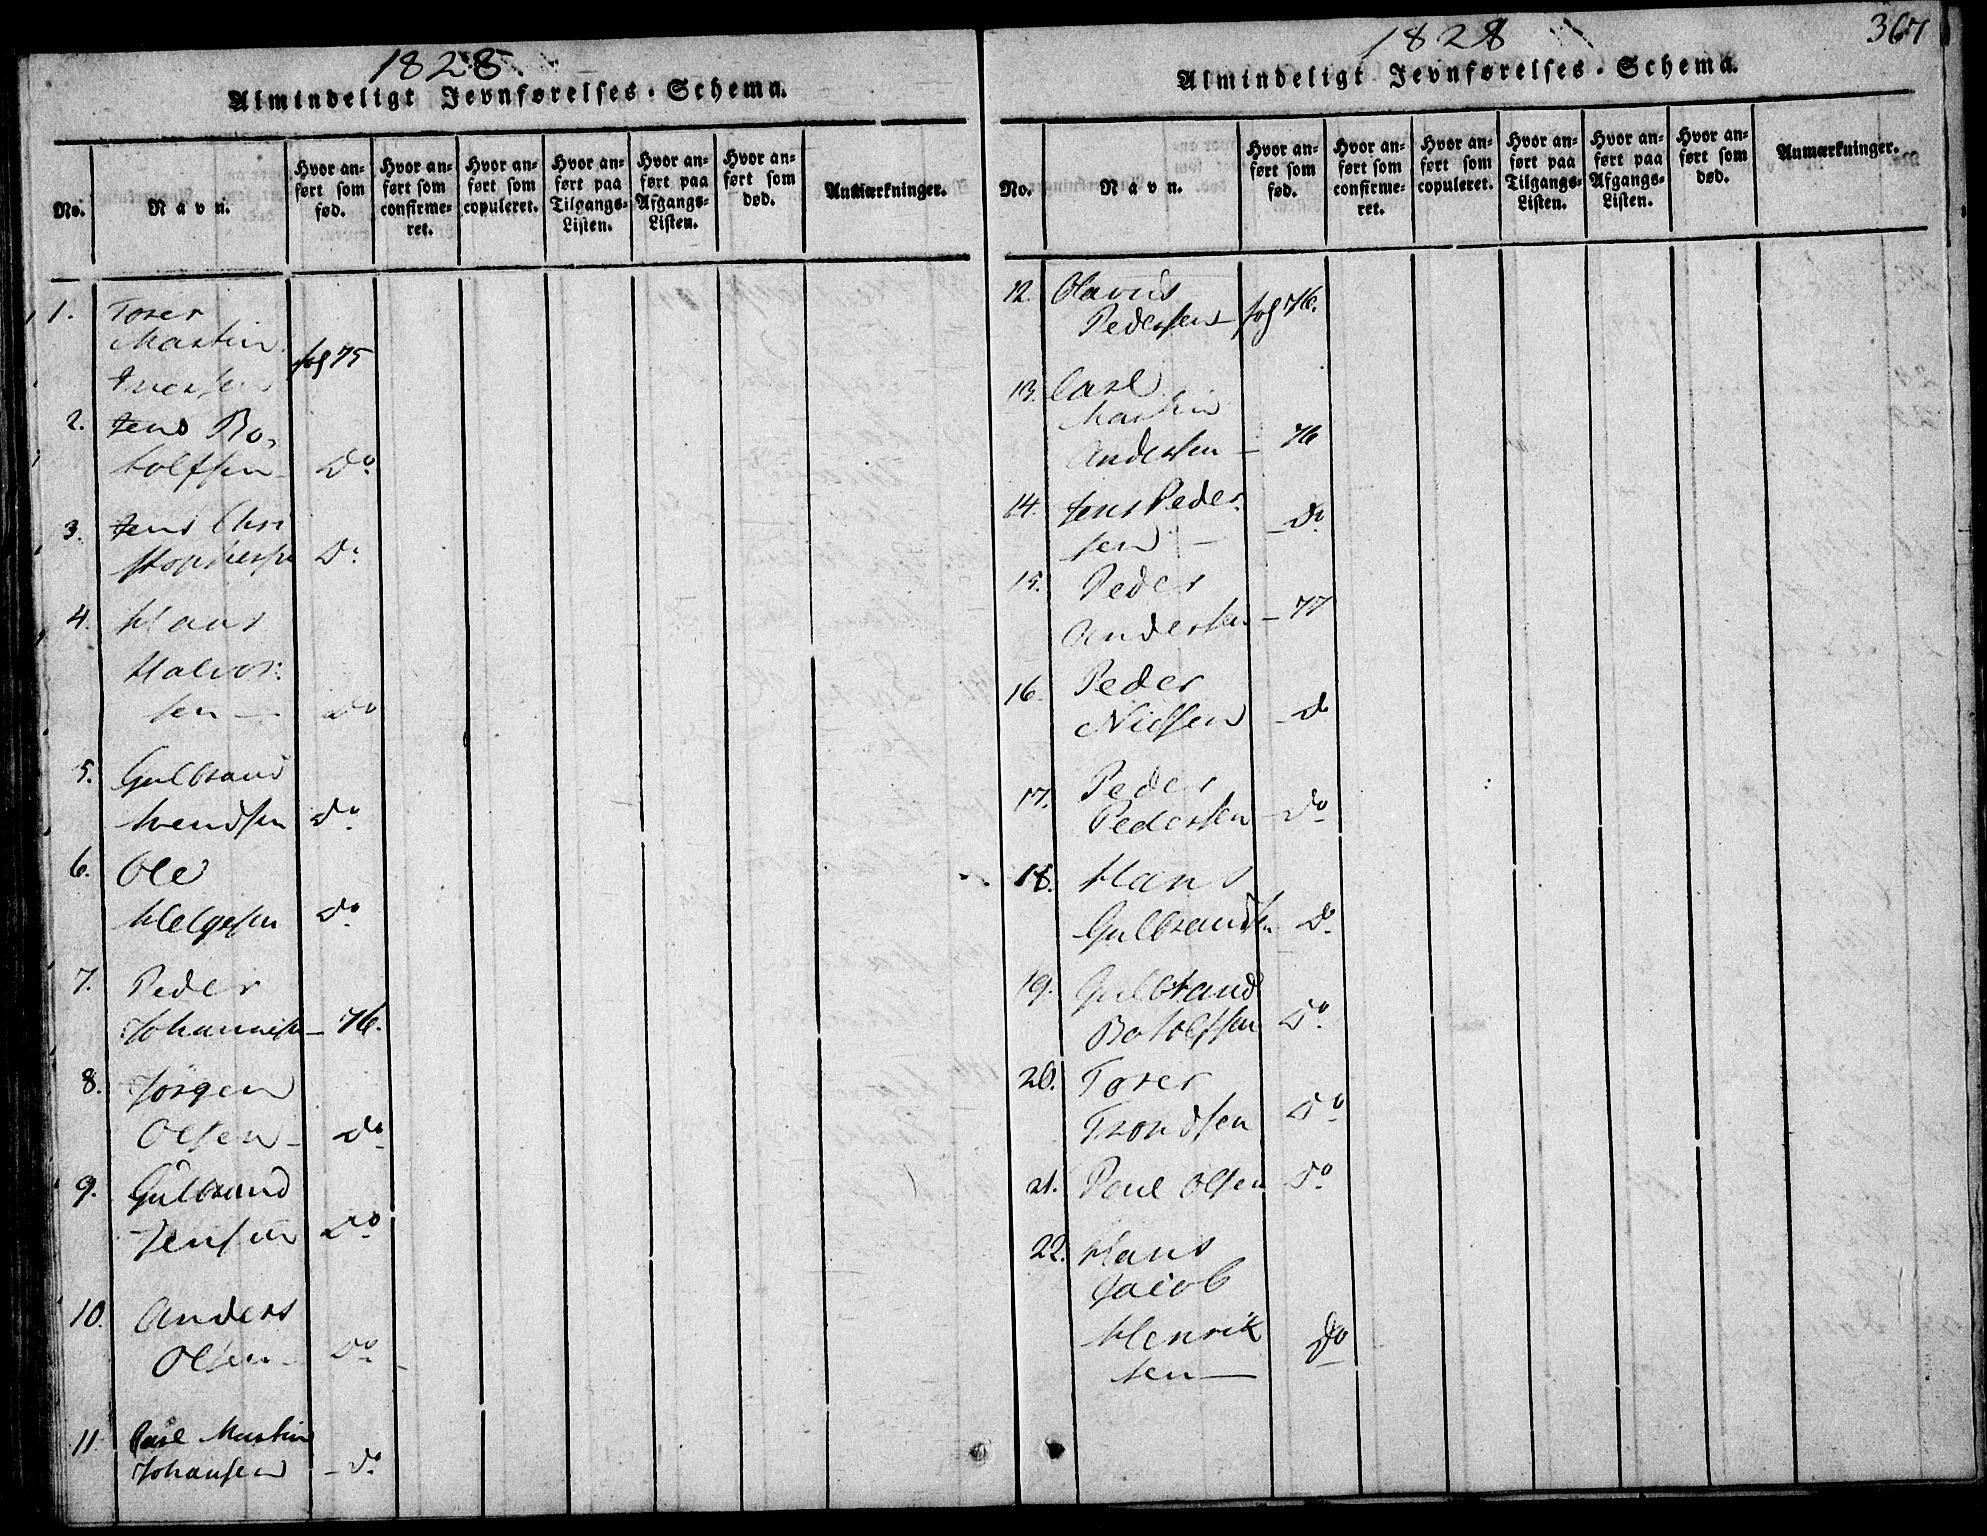 1828.
Almindeligt Jevnførelses-Schema.
No.
Navn.
Hvor anført som født.
Hvor anført som confirmeret.
Hvor anført som copuleret.
Hvor anført paa Tilgangs-Listen.
Hvor anført paa Afgangs-Listen.
Hvor anført som død.
Anmærkninger.
1. Torer
Martin
Iversen fol 75
2. Jens Bo-
tolfsen Do
3. Jens Chri
stophersen Do
4. Hans
Halvor:
sen — Do
5. Gulbrand
Svendsen Do
6. Ole
Helgesen Do
7. Peder
Johannesen — 76.
8. Jörgen
Olsen — Do
9. Gulbrand
Jensen Do
10. Anders
Olsen — Do
11 Carl Martin
Johansen — Do
1828
367
Almindeligt Jevnførelses-Schema.
No.
Navn.
Hvor anført som fød.
Hvor anført som confirmeret.
Hvor anført som copuleret.
Hvor anført paa Tilgangs-Listen.
Hvor anført paa Afgangs-Listen.
Hvor anført som død.
Anmærkninger.
12. Olavus
Pedersen — fol 76.
13. Carl
Martin
Andersen — 76
14. Jens Peder-
sen — Do
15. Peder
Andersen — 77
16. Peder
Nielsen — do
17. Peder
Pedersen — Do
18. Hans
Gulbrandsen Do
19. Gulbrand
Botolfsen Do
20. Torer
Trondsen Do
21. Poul Olsen Do
22. Hans
Jacob
Henrik
sen — Do